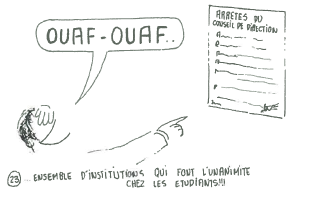 OUAF-OUAF..
ARRÊTÉS DU
CONSEIL DE DIRECTION
23 ...ENSEMBLE D'INSTITUTIONS QUI FONT L'UNANIMITE
CHEZ LES ETUDIANTS!!!